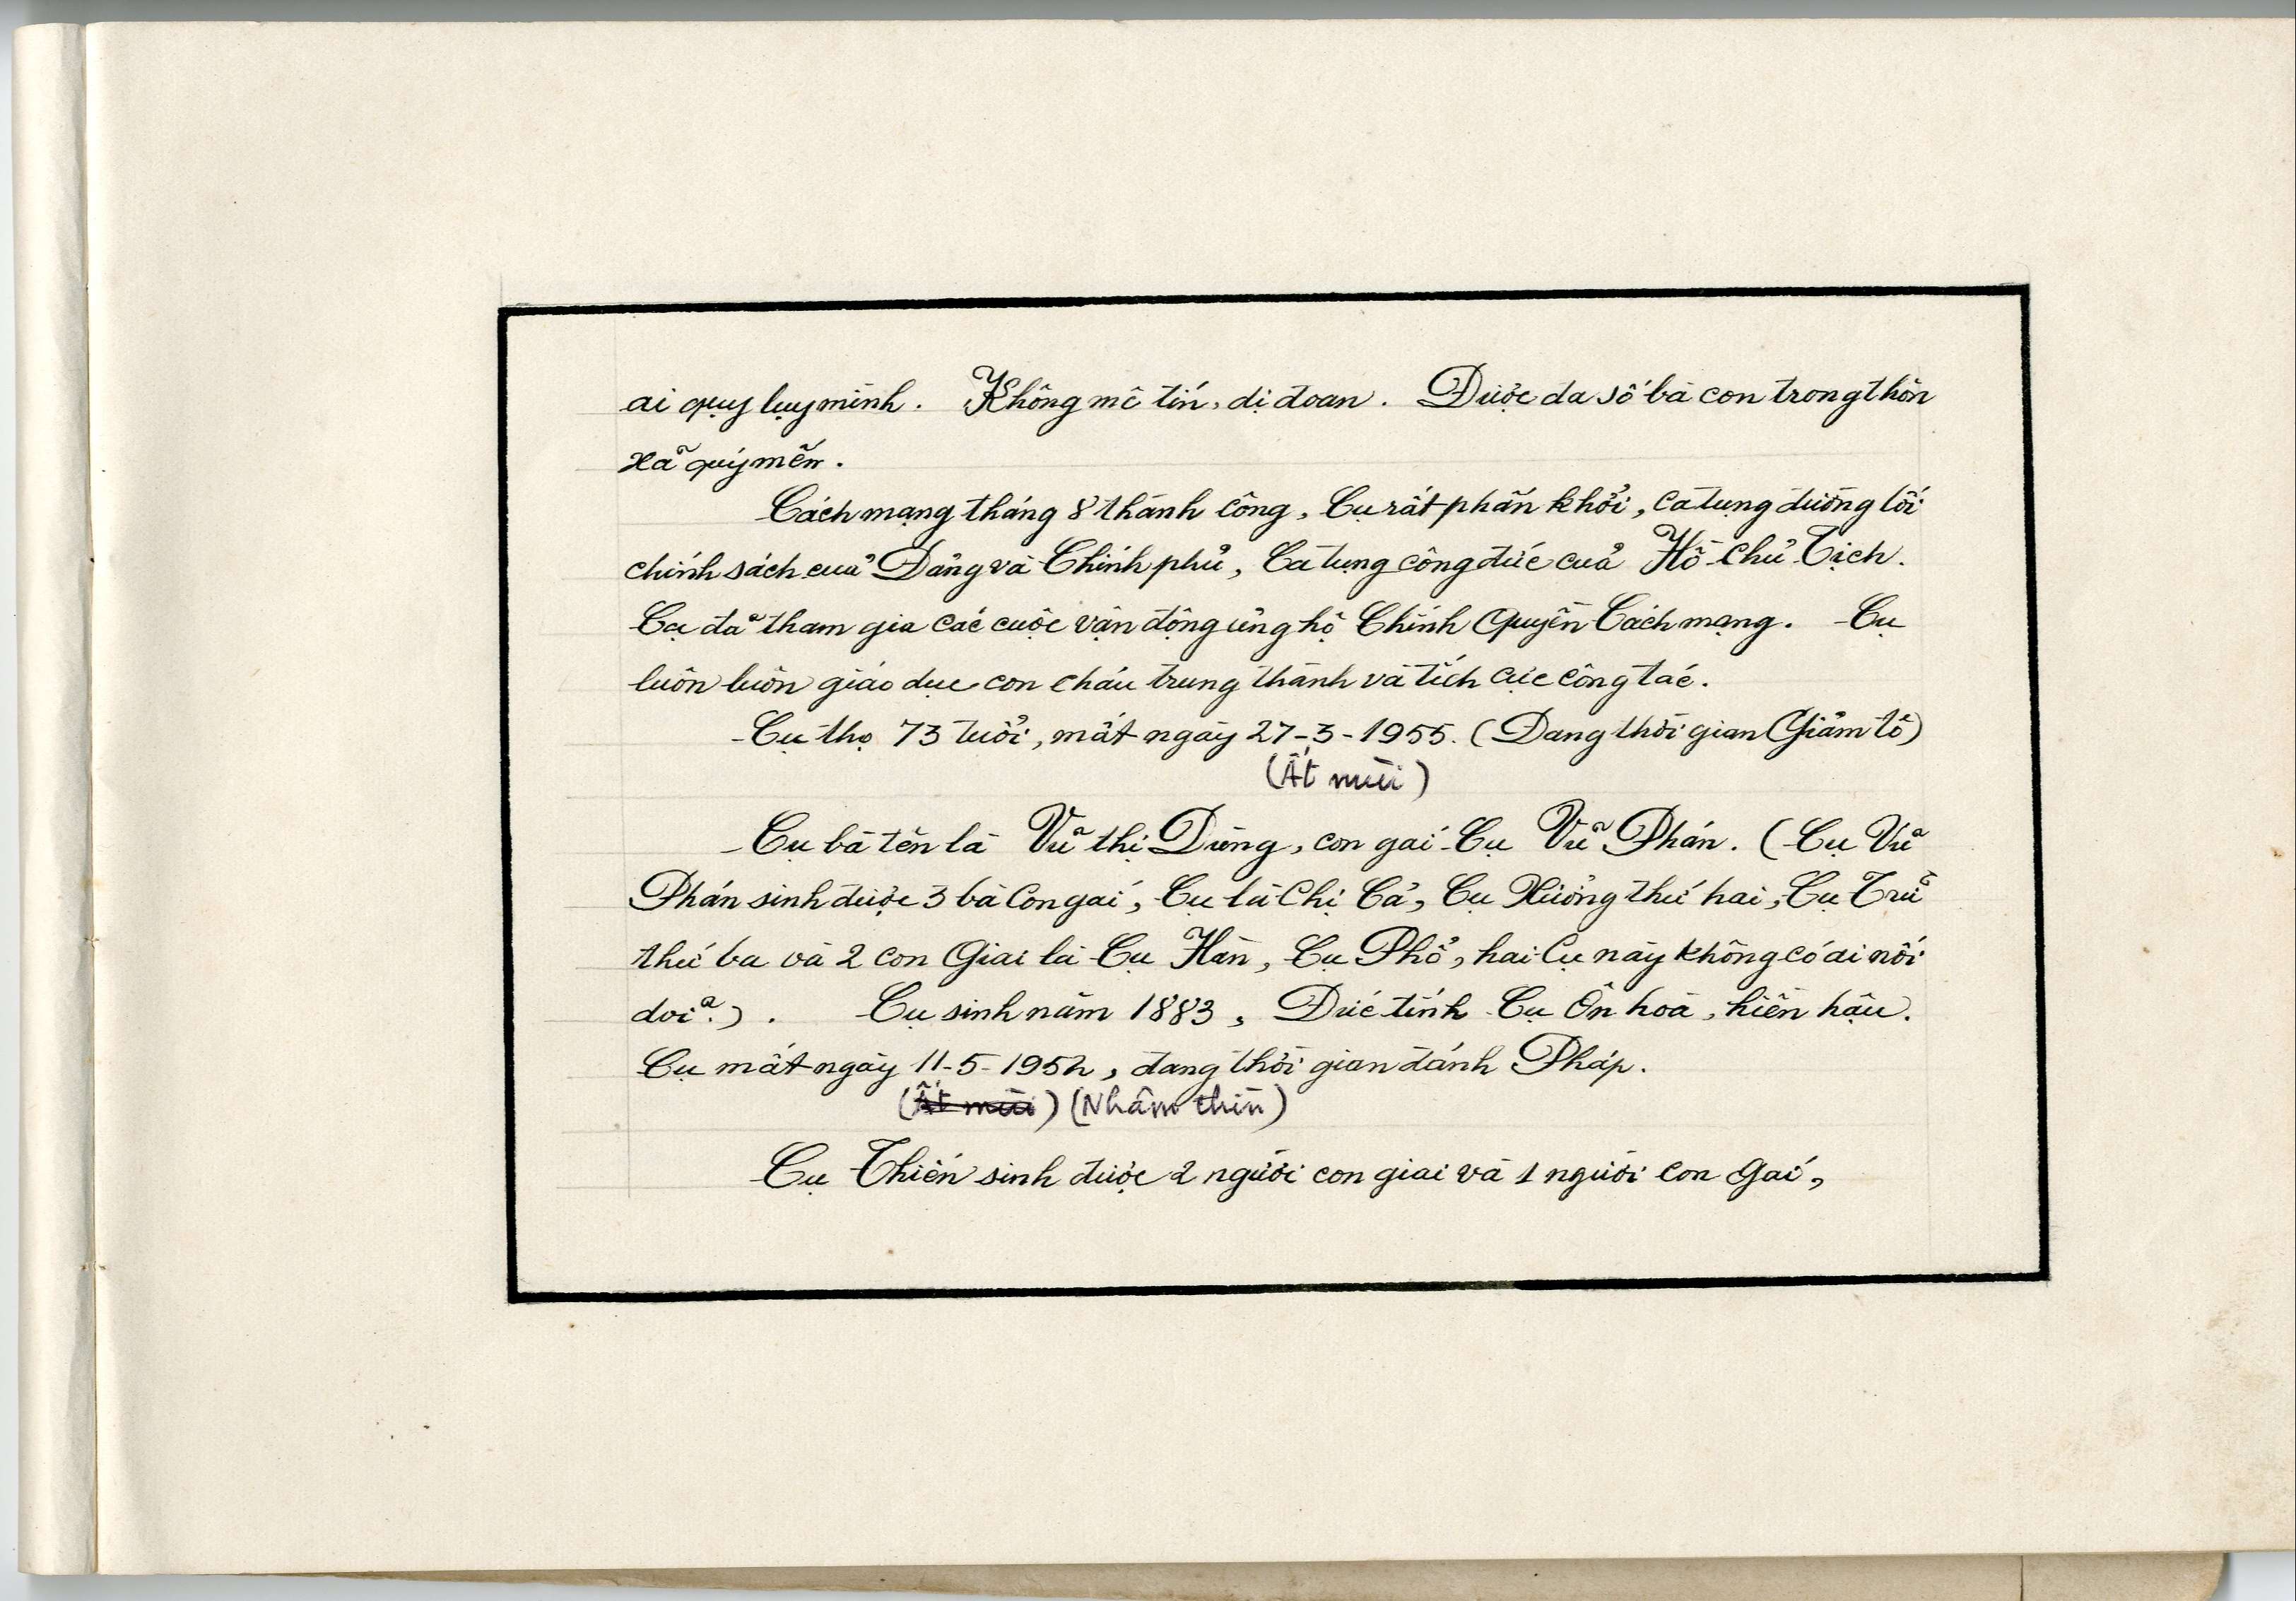 ai quỵ lụy mình. Không mê tín, dị đoan. Được đa số bà con trong thôn
xã quý mến.
Cách mạng tháng 8 thành công, Cụ rất phấn khởi, ca tụng đường lối
chính sách của Đảng và Chính phủ, Ca tụng công đức của Hồ Chủ Tịch.
Cụ đã tham gia các cuộc vận động ủng hộ Chính Quyền Cách mạng. Cụ
luôn luôn giáo dục con cháu trung thành và tích cực công tác.
Cụ thọ 73 tuổi, mất ngày 27-3-1955. (Đang thời gian Giảm tô)
(Ất mùi)
Cụ bà tên là Vũ thị Dùng, con gái Cụ Vũ Phán. (Cụ Vũ
Phán sinh được 3 bà Con gái, Cụ là Chị Cả, Cụ Xưởng thứ hai, Cụ Trữ
thứ ba và 2 con Giai là Cụ Hàn, Cụ Phổ, hai Cụ này không có ai nối
dõi.). Cụ sinh năm 1883, Đức tính Cụ Ôn hoà, hiền hậu.
Cụ mất ngày 11-5-1952, đang thời gian đánh Pháp.
(Ất mùi) (Nhâm thìn)
Cụ Thiện sinh được 2 người con giai và 1 người con Gái,